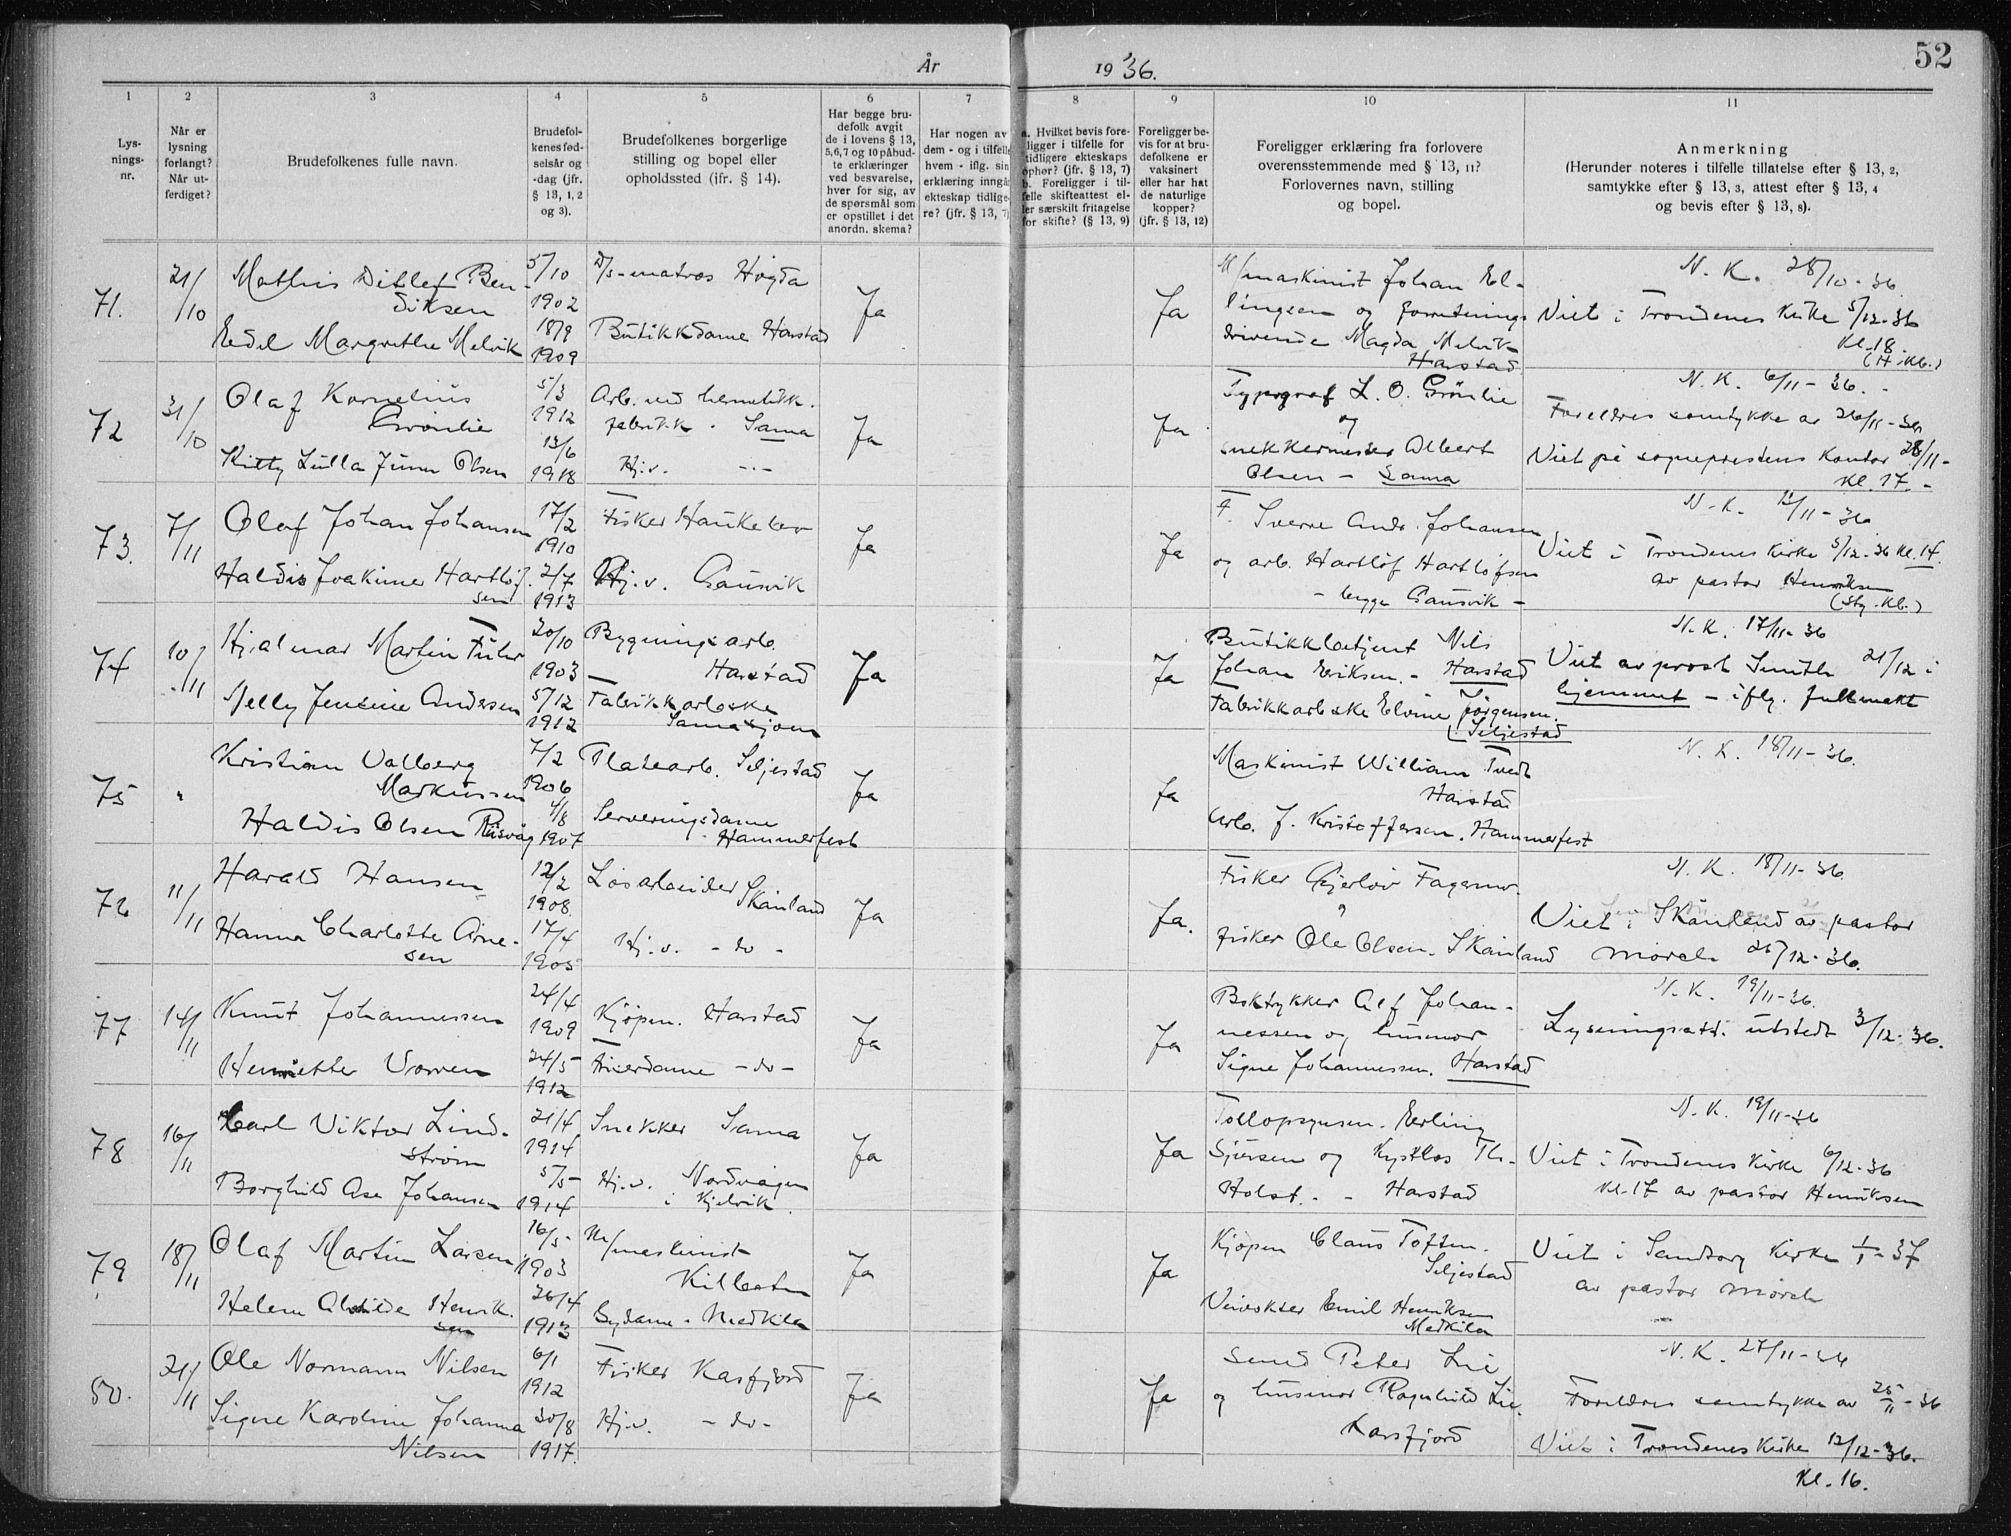 52
År 19 36.
1 2 3 4 5 6 7 8 9 10 11
Lys-
nings-
nr.
Når er
lysning
forlangt?
Når ut-
ferdiget?
Brudefolkenes fulle navn.
Brudefol-
kenes fød-
selsår og
-dag (jfr.
§ 13, 1, 2
og 3).
Brudefolkenes borgerlige
stilling og bopel eller
opholdssted (jfr. § 14).
Har begge bru-
defolk avgit
de i lovens § 13,
5,6,7 og 10 påbud-
te erklæringer
ved besvarelse,
hver for sig, av
de spørsmål som
er opstillet i det
anordn. skema?
Har nogen av
dem - og i tilfelle
hvem - iflg. sin
erklæring inngå
ekteskap tidlige-
re? (jfr. § 13, 7)
a. Hvilket bevis fore-
ligger i tilfelle for
tidligere ekteskaps
ophør? (jfr. § 13, 7)
b. Foreligger i til-
felle skifteattest el-
ler særskilt fritagelse
for skifte? (§ 13, 9)
Foreligger be-
vis for at bru-
defolkene er
vaksinert
eller har hat
de naturlige
kopper?
(jfr. § 13, 12)
Foreligger erklæring fra forlovere
overensstemmende med § 13, 11?
Forlovernes navn, stilling
og bopel.
Anmerkning
(Herunder noteres i tilfelle tillatelse efter § 13, 2,
samtykke efter § 13, 3, attest efter § 13, 4
og bevis efter § 13, 8).
71.
21/10
Mathis Ditlef Ben-
diksen
Edel Margrethe Melvik
5/10
1902
18/9
1909
D/s-matros Høgda
Butikkdame Harstad
Ja
Ja
M/maskinist Johan El-
lingsen og forretnings
drivende Magda Melvik
Harstad
N. K. 28/10-36
Viet i Trondenes Kirke 5/12-36
Kl. 18
72
31/10
Olaf Kornelius
Grønlie
Kitty Lulla Olsen
5/3
1912
13/6
1918
Arb. ved hermetikk.
fabrikk. Sama
Hj.v. -"-
Ja
Ja
Typograf L. O. Grønlie
og
snekkermester Albert
Olsen - Sama
N. K. 6/11-36.-
Foreldres samtykke av 26/11-36
Viet på sogneprestens kontor 28/11-
Kl. 17.-
73.
7/11
Olaf Johan Johansen
Haldis Joakime Hartløf-
sen
17/2
1910
2/7
1913
Fisker
Hj.v. Gausvik
Ja
Ja
F. Sverre Andr. Johansen
og arb. Hartløf Hartløfsen
- begge Gausvik -
N. K. 12/11-36
Viet i Trondenes Kirke 5/12-36 Kl. 14.
av pastor Henriksen
74
10/11
Hjalmar Martin
Nelly Jensine Andersen
20/10
1903
5/12
1912
Bygningsarb.
Harstad
Fabrikkarbske
Samasjøen
Ja
Ja
Butikkbetjent Nils
Johan Eriksen. - Harstad
Fabrikkarbske Elvine Jørgensen.
Seljestad
N. K. 17/11-36
Viet av prost Smith 21/12 i
hjemmet - iflg. fullmakt
75
"
Kristian Valberg
Markussen
Haldis Olsen Risvåg
7/2
1906
4/8
1907
Platearb. Seljestad
Serveringsdame
Hammerfest
Ja
Ja
Maskinist William Tvedt
Harstad
Arb. J. Kristoffersen. Hammerfest
N. K. 18/11-36.
76
11/11
Harald Hansen
Hanna Charlotte Arne-
sen
12/2
1908.
17/4
1905
Løsarbeider
Skånland
Hj.v. - do -
Ja
Ja.
Fisker Gjerløv
Fisker Ole Olsen. Skånland
N. K. 18/11-36.
Viet i Skånland av pastor
Mørch 26/12-36.
77
14/11
Knut Johannessen
Henriette Vorren
24/4
1909
24/5-
1912
Kjøpm. Harstad
Frisérdame - do -
Ja
Ja
Boktrykker Alf Johan-
nessen og husmor
Signe Johannessen. Harstad
N. K. 19/11-36.
Lysningsatt. utstedt 3/12-36.
78
16/11
Carl Viktor Lind-
strøm
Borghild Åse Johansen
21/4
1914
5/5-
1914
Snekker Sama
Hj.v. Nordvågen
i Kjelvik.
Ja
Ja
Tollopsynsm. Erling
Sjursen og Kystlos Th.
Holst. - Harstad
N. K. 19/11-36
Viet i Trondenes Kirke 6/12-36
Kl. 17 av pastor Henriksen
79
18/11
Olaf Martin Larsen
Helene Henrik-
sen
16/5-
1903
26/4
1913
M/maskinist
Kilbotn
Sydame - Medkila
Ja
Ja
Kjøpm Claus Toften.
Seljestad
Veivokter Emil Henriksen
Medkila
Viet i Sandtorg Kirke 1/1-37
av pastor Mørch
80.
21/11
Ole Normann Nilsen
Signe Karoline Johanna
Nilsen
6/1
1912
30/8
1917.
Fisker Kasfjord
Hj.v. - do -
Ja
Ja
Smed Peter Lie
og husmor Ragnhild Lie.
Kasfjord
N. K. 27/11-36
Foreldres samtykke av 25/11-36
Viet i Trondenes Kirke 12/12-36.
Kl. 16.